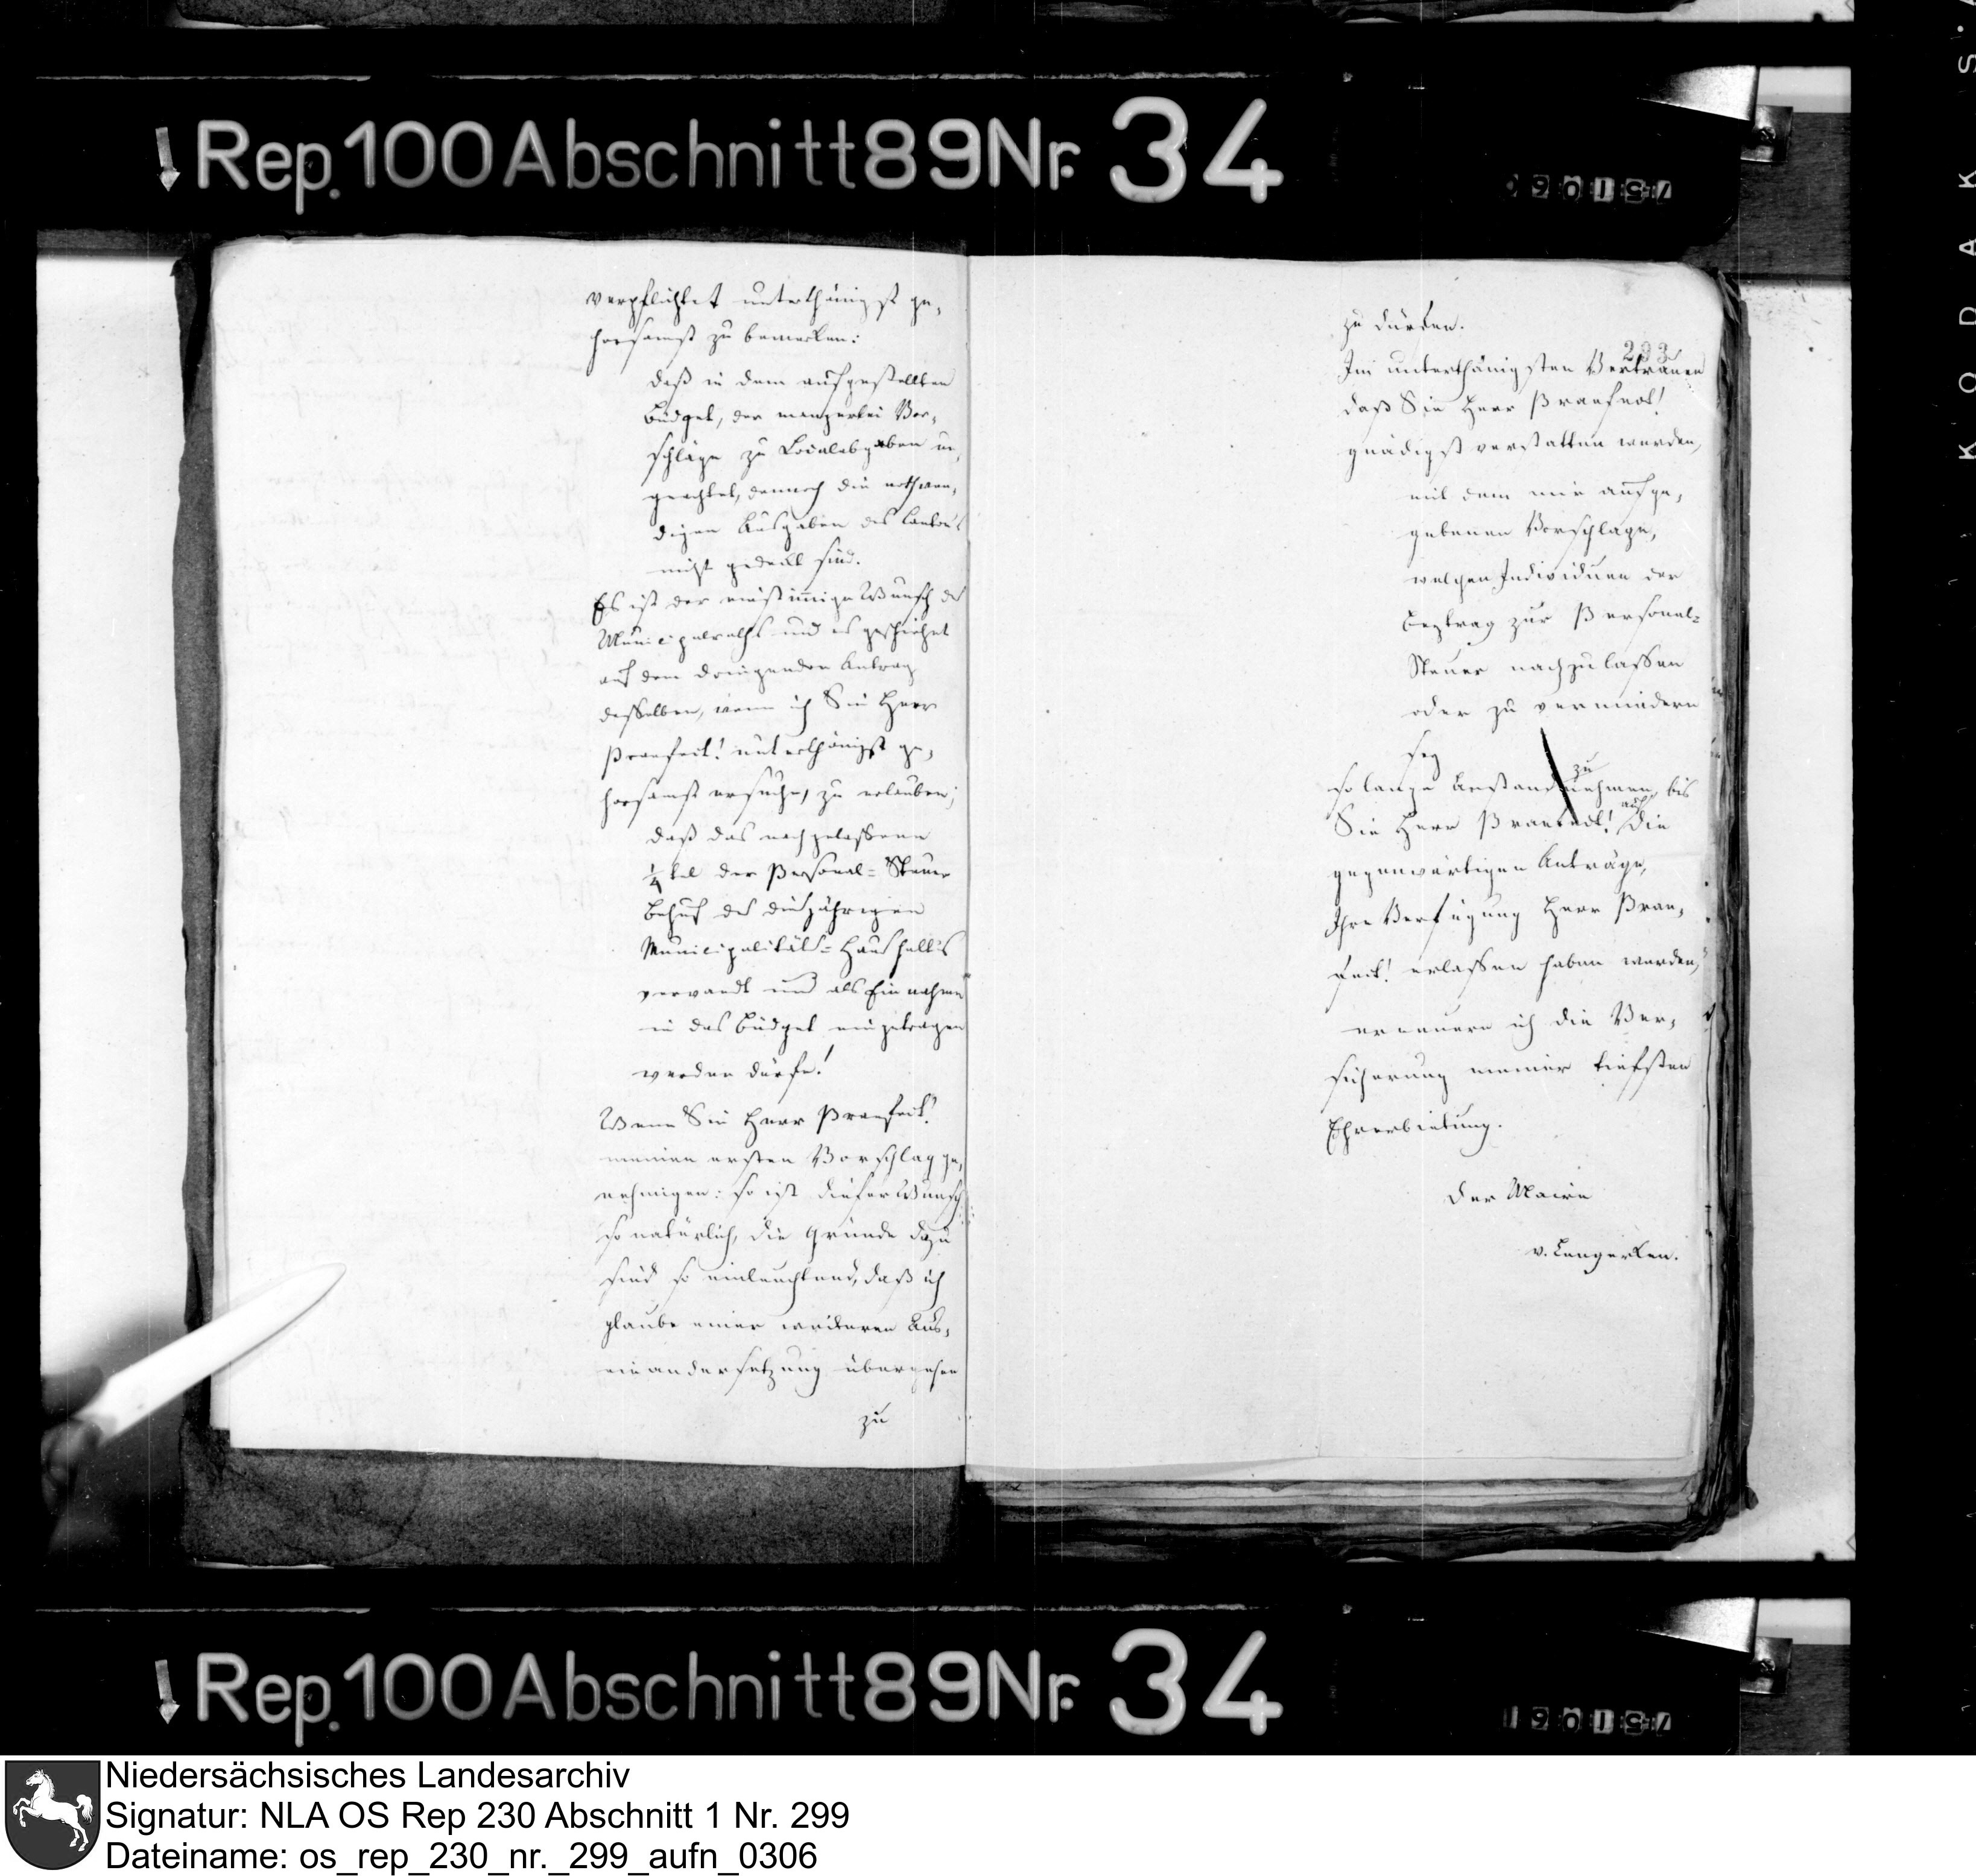 Rep. 100 Abschnitt 89 Nr. 34
verpflichtet unterthänigst ge,
horsamst zu bemerken:
daß in dem aufgestellten
Büdget, der mancherlei Vor,
schläge zu Localabgaben un,
geachtet, dennoch die nothwen,
digen Ausgaben des Cantons
nicht gedeckt sind.
Es ist der einstimmige Wunsch des
Municipalraths und es geschiehet
auf dem dringenden Antrag
desselben, wenn ich Sie Herr
Praefect! unterthänigst ge,
horsamst ersuche, zu erlauben;
daß das nachgelassene
1/4 tel der Personal=Steuer
Behuf des diesjährigen
Municipalitäts=Haushalts
verwandt und als Einnahme
in das Büdget eingetragen
werden dürfe!
Wenn Sie Herr Praefect!
meinen ersten Vorschlag ge,
nehmigen: so ist dieser Wunsch
so natürlich, die Gründe dazu
sind so einleuchtend, daß ich
glaube einer weiteren Aus,
einandersetzung übergehen
zu
293
zu dürfen.
Im unterthänigsten Vertrauen
daß Sie Herr Praefect!
gnädigst verstatten werden,
mit dem mir aufge,
gebenen Vorschlage,
welchen Individuen der
Beytrag zur Personal=
Steuer nachzulassen
oder zu vermindern
sey
so lange Anstand zu nehmen, bis
Sie Herr Praefect! auf die
gegenwärtigen Anträge,
Ihre Verfügung Herr Prae,
fect! erlassen haben werden,
erneuere ich die Ver,
sicherung meiner tiefsten
Ehrerbietung.
Der Maire
v. Lengerken.
KODAK S
Rep. 100 Abschnitt 89 Nr. 34
Niedersächsisches Landesarchiv
Signatur: NLA OS Rep 230 Abschnitt 1 Nr. 299
Dateiname: os_rep_230_nr._299_aufn_0306